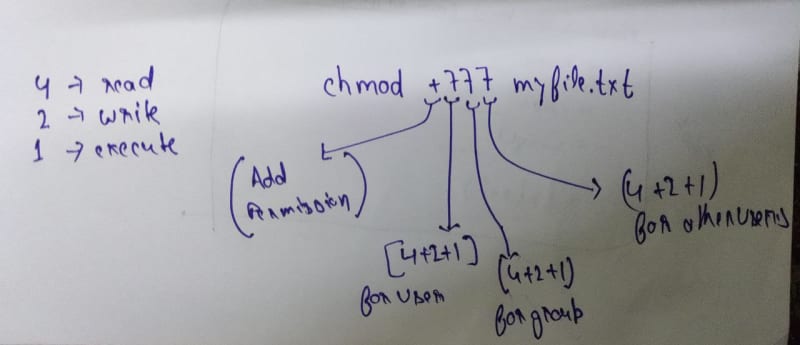 4 → read
2 → write
1 → execute
chmod +777 myfile.txt
(Add
Permission)
[4+2+1]
for user
(4+2+1)
for group
(4+2+1)
for other users